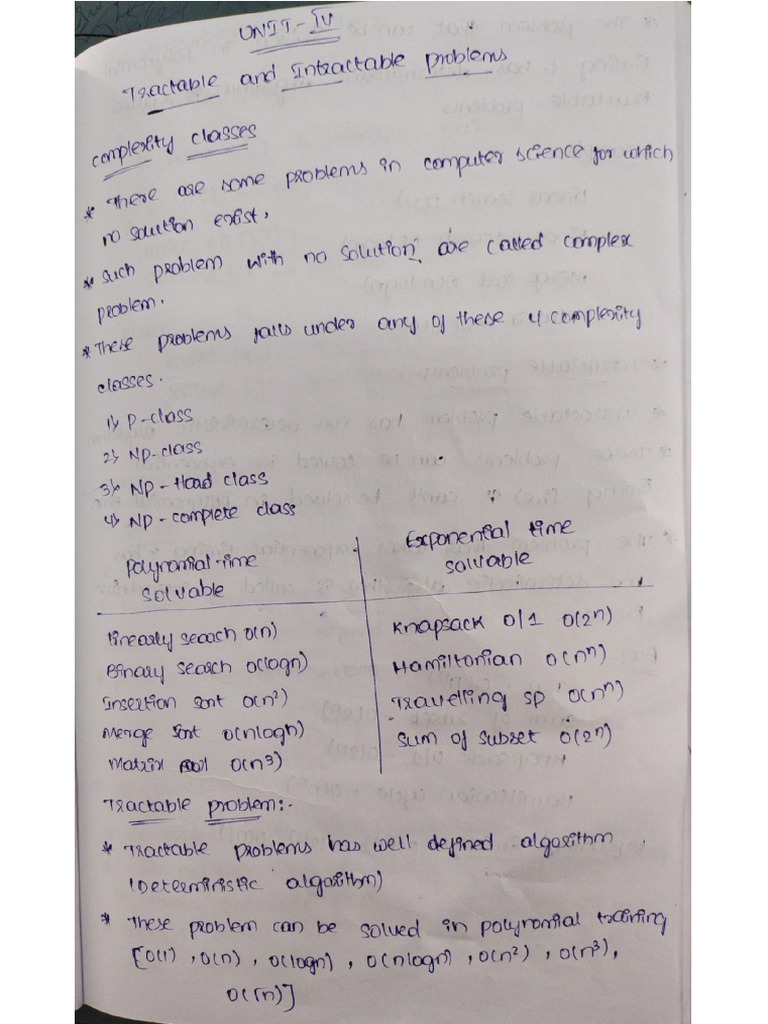 UNIT-IV
Tractable and Intractable problems
complexity classes
* There are some problems in computer science for which
no solution exist,
* such problem with no solution, are called complex
problem.
* These problems falls under any of these 4 complexity
classes.
1) P-class
2) NP-class
3) NP-Hard class
4) NP-complete class
Polynomial-time
solvable
Exponential time
solvable
linearly search O(n)
Binary search O(logn)
Insertion sort O(n²)
Merge sort O(nlogn)
Matrix O(n³)
Knapsack 0/1 O(2ⁿ)
Hamiltonian O(nⁿ)
Travelling sp O(nⁿ)
sum of subset O(2ⁿ)
Tractable problem:-
* Tractable problems has well defined algorithm
(Deterministic algorithm)
* These problem can be solved in polynomial
[O(1), O(n), O(logn), O(nlogn), O(n²), O(n³),
O(√n)]